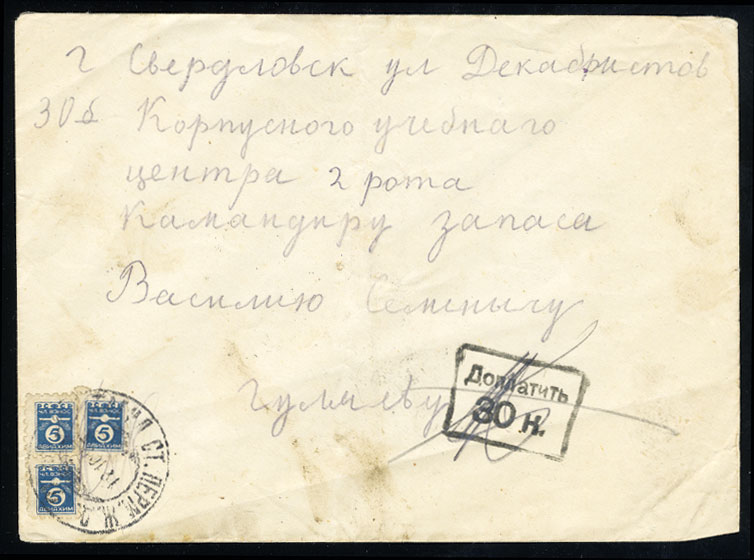 г Свердловск ул Декабристов
30б Корпусного учебнаго
центра 2 рота
Камандиру запаса
Василию Семенычу
Гуляеву
Доплатить
30 к.
ЧЛ. ВЗНОС
5
АВИАХИМ
ЧЛ. ВЗНОС
5
АВИАХИМ
5
АВИАХИМ
СТ. ПЕРМ. Ж.Д.